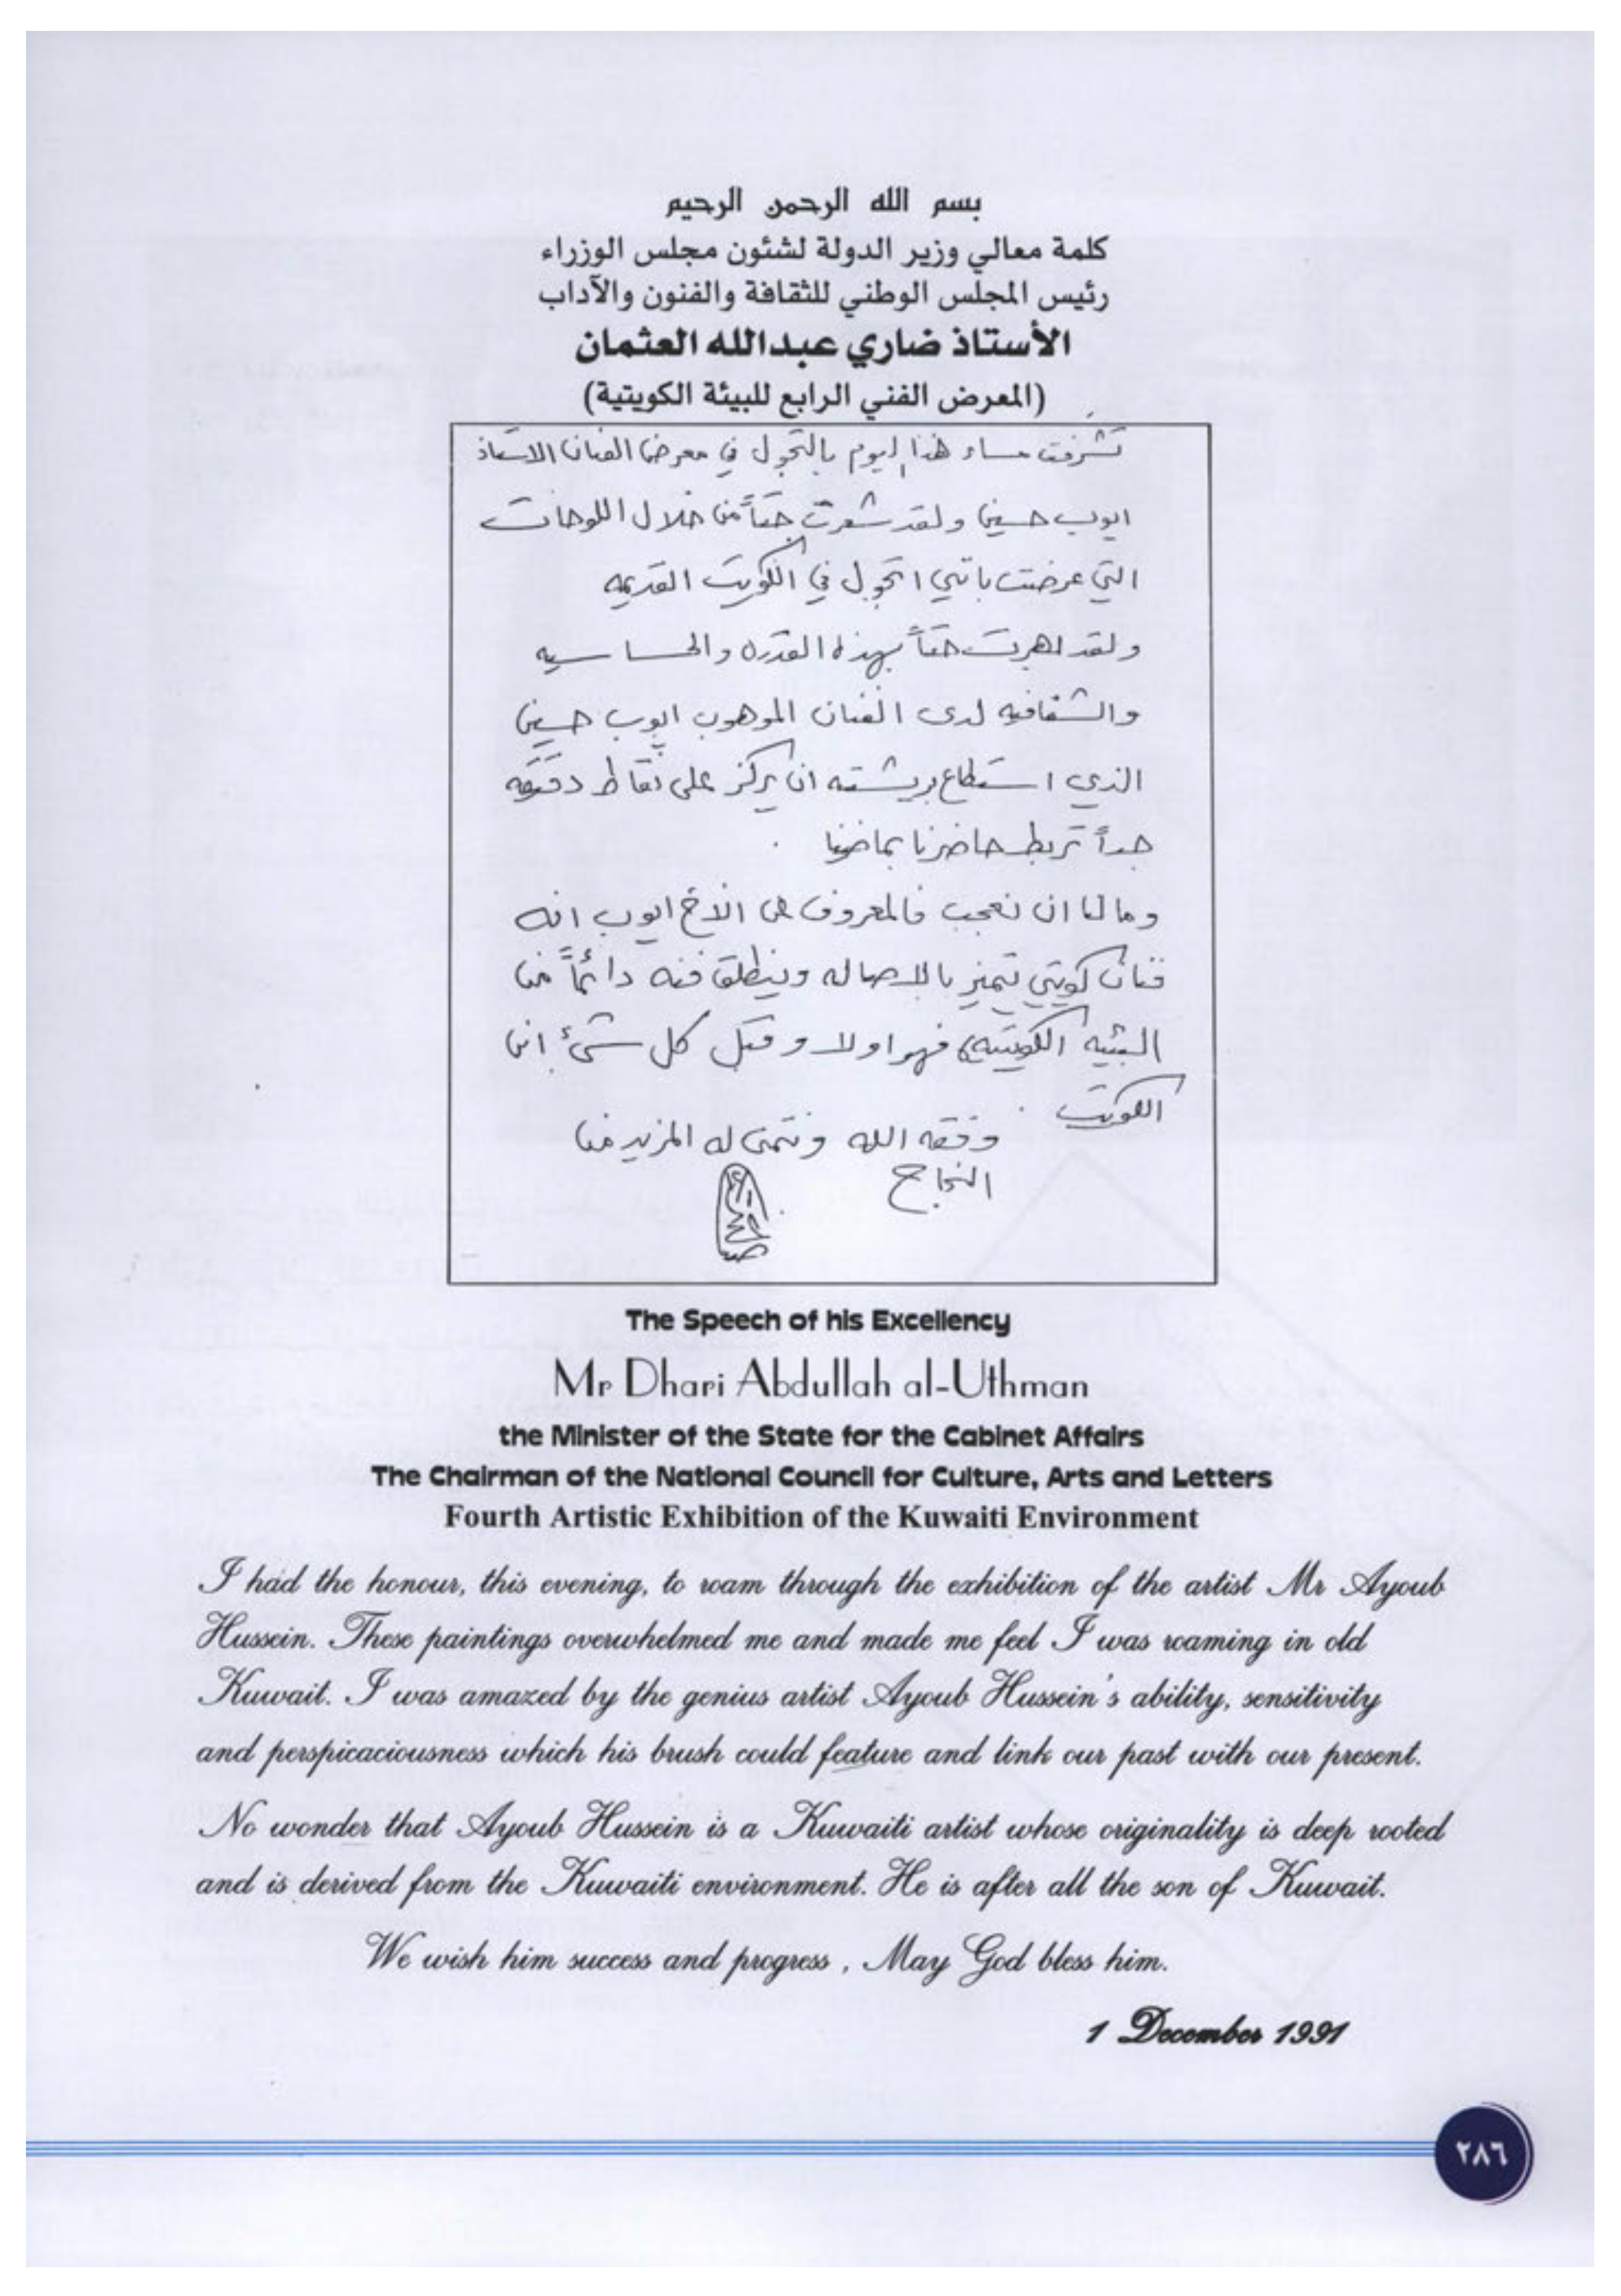 بسم الله الرحمن الرحيم
كلمة معالي وزير الدولة لشئون مجلس الوزراء
رئيس المجلس الوطني للثقافة والفنون والآداب
الأستاذ ضاري عبدالله العثمان
(المعرض الفني الرابع للبيئة الكويتية)
تشرفت مساء هذا اليوم بالتجول في معرض الفنان الاستاذ
ايوب حسين ولقد شعرت حقاً من خلال اللوحات
التي عرضت بانني اتجول في الكويت القديمه
ولقد بهرت حقاً بهذه القدره والحساسيه
والشفافيه لدى الفنان الموهوب ايوب حسين
الذي استطاع بريشته ان يركز على نقاط دقيقه
جداً تربط حاضرنا بماضينا .
وما لنا ان نعجب فالمعروف عن الاخ ايوب انه
فنان كويتي تميز بالاصاله وينطلق فنه دائماً من
البيئه الكويتيه فهو اولا وقبل كل شيء ابن
الكويت .
وفقه الله ونتمنى له المزيد من
النجاح
The Speech of his Excellency
Mr Dhari Abdullah al-Uthman
the Minister of the State for the Cabinet Affairs
The Chairman of the National Council for Culture, Arts and Letters
Fourth Artistic Exhibition of the Kuwaiti Environment
I had the honour, this evening, to roam through the exhibition of the artist Mr Ayoub
Hussein. These paintings overwhelmed me and made me feel I was roaming in old
Kuwait. I was amazed by the genius artist Ayoub Hussein's ability, sensitivity
and perspicaciousness which his brush could feature and link our past with our present.
No wonder that Ayoub Hussein is a Kuwaiti artist whose originality is deep rooted
and is derived from the Kuwaiti environment. He is after all the son of Kuwait.
We wish him success and progress , May God bless him.
1 December 1991
٢٨٦